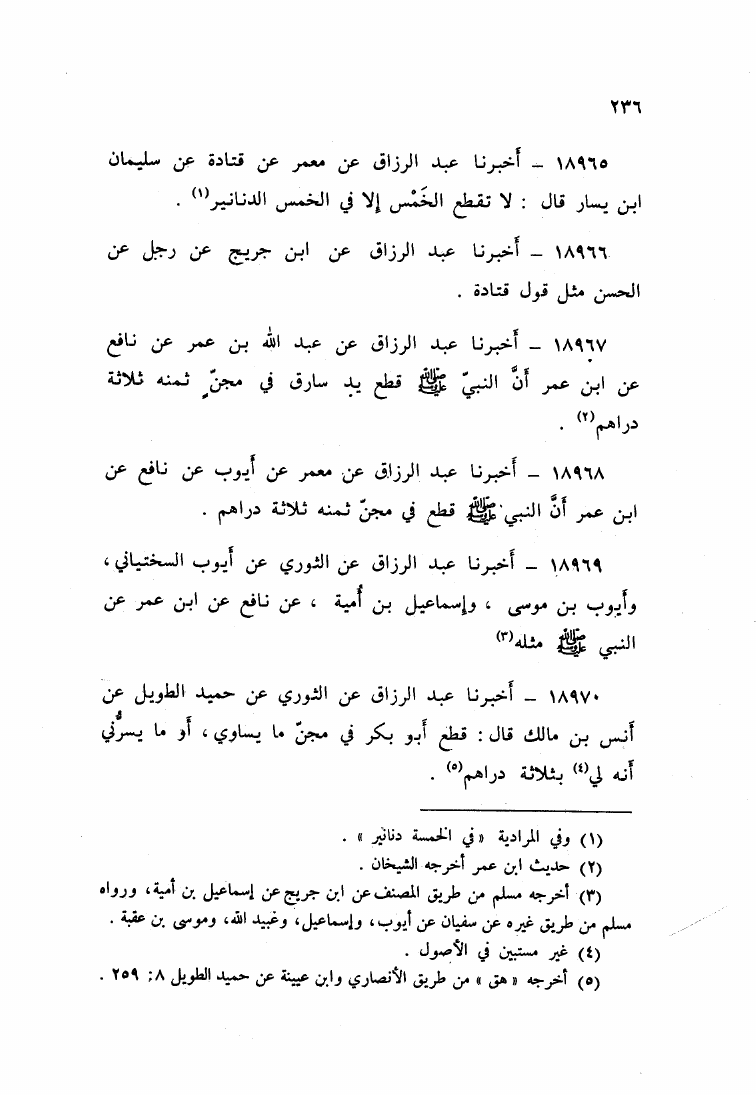 ٢٣٦
١٨٩٦٥ – أخبرنا عبد الرزاق عن معمر عن قتادة عن سليمان
ابن يسار قال : لا تقطع الخَمْس إلا في الخمس الدنانير(١) .
١٨٩٦٦ – أخبرنا عبد الرزاق عن ابن جريج عن رجل عن
الحسن مثل قول قتادة .
١٨٩٦٧ – أخبرنا عبد الرزاق عن عبد الله بن عمر عن نافع
عن ابن عمر أنَّ النبيّ ﷺ قطع يد سارق في مجنٍّ ثمنه ثلاثة
دراهم(٢) .
١٨٩٦٨ – أخبرنا عبد الرزاق عن معمر عن أيوب عن نافع عن
ابن عمر أنَّ النبي ﷺ قطع في مجنّ ثمنه ثلاثة دراهم .
١٨٩٦٩ – أخبرنا عبد الرزاق عن الثوري عن أيوب السختياني ،
وأيوب بن موسى ، وإسماعيل بن أُمية ، عن نافع عن ابن عمر عن
النبي ﷺ مثله(٣)
١٨٩٧٠ – أخبرنا عبد الرزاق عن الثوري عن حميد الطويل عن
أنس بن مالك قال : قطع أبو بكر في مجنّ ما يساوي ، أو ما يسرُّني
أنه لي(٤) بثلاثة دراهم(٥) .
(١) وفي المرادية « في الخمسة دنانير » .
(٢) حديث ابن عمر أخرجه الشيخان .
(٣) أخرجه مسلم من طريق المصنف عن ابن جريج عن إسماعيل بن أمية، ورواه
مسلم من طريق غيره عن سفيان عن أيوب، وإسماعيل، وعبيد الله، وموسى بن عقبة .
(٤) غير مستبين في الأصول .
(٥) أخرجه « هق » من طريق الأنصاري وابن عيينة عن حميد الطويل ٨: ٢٥٩ .